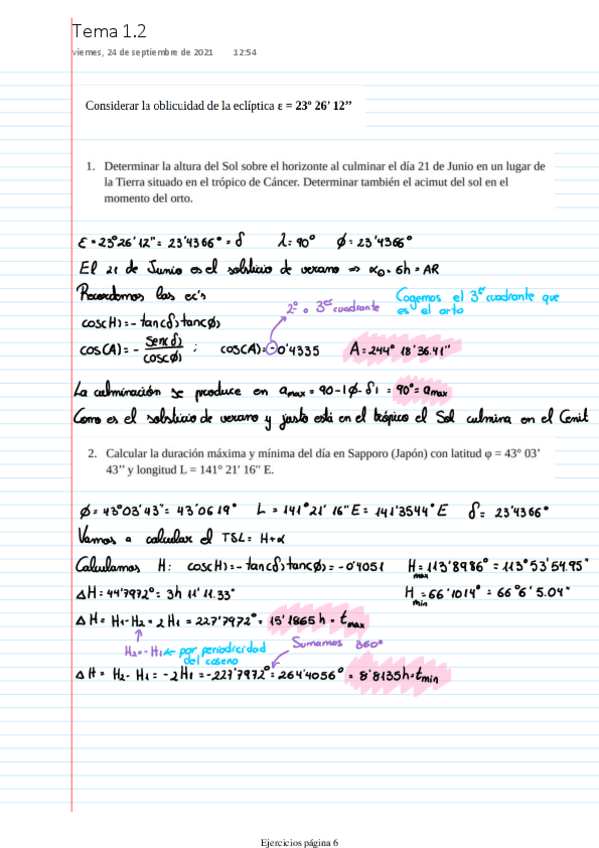 Tema 1.2
viernes, 24 de septiembre de 2021 12:54
Considerar la oblicuidad de la eclíptica ε = 23º 26' 12"
1. Determinar la altura del Sol sobre el horizonte al culminar el día 21 de Junio en un lugar de
la Tierra situado en el trópico de Cáncer. Determinar también el acimut del sol en el
momento del orto.
ε = 23º26'12" = 23'4366º = δ λ = 90º ϕ = 23'4366º
El 21 de Junio es el solsticio de verano ⇒ α⊙ = 6h = AR
Recordemos las ec's
Cogemos el 3er cuadrante que
es el orto
2º o 3er cuadrante
cos(H) = -tan(δ)tan(ϕ)
cos(A) = - sen(δ)/cos(ϕ) ; cos(A) = -0'4335 A = 244º 18'36.41"
La culminación se produce en amax = 90 - |ϕ - δ| = 90º = amax
Como es el solsticio de verano y justo está en el trópico el Sol culmina en el Cenit
2. Calcular la duración máxima y mínima del día en Sapporo (Japón) con latitud φ = 43° 03'
43" y longitud L = 141° 21' 16" E.
ϕ = 43º03'43" = 43'0619º L = 141º21'16"E = 141'3544º E δ = 23'4366º
Vamos a calcular el TSL = H+α
Calculamos H: cos(H) = -tan(δ)tan(ϕ) = -0'4051 Hmax = 113'8986º = 113º53'54.95"
ΔH = 44'7972º = 3h 11' 11.33" Hmin = 66'1014º = 66º6'5.04"
ΔH = H1 - H2 = 2H1 = 227'7972º = 15'1865h = tmax
H2 = -H1 ← por periodicidad
del coseno
Sumamos 360º
ΔH = H2 - H1 = -2H1 = -227'7972º = 264'4056º = 8'8135h = tmin
Ejercicios página 6